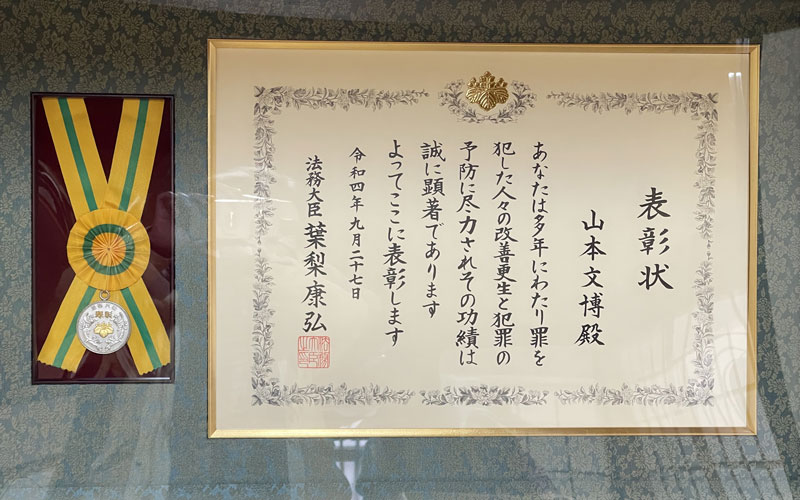 表彰状
山本文博殿
あなたは多年にわたり罪を
犯した人々の改善更生と犯罪の
予防に尽力されその功績は
誠に顕著であります
よってここに表彰します
令和四年九月二十七日
法務大臣 葉梨康弘